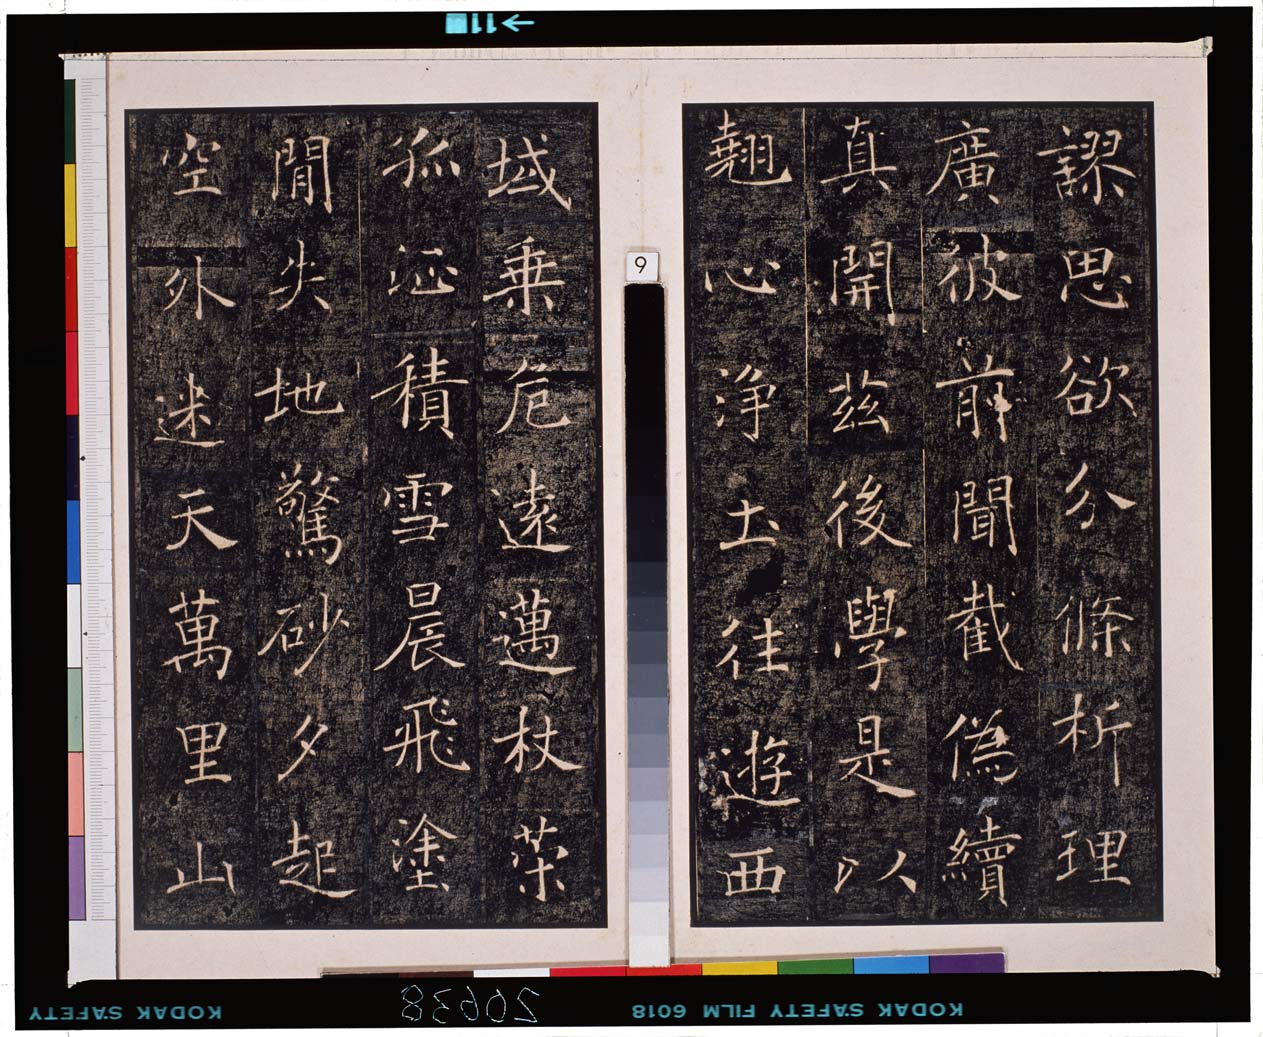 謬思欲分條析理
廣彼前聞截偽續
真開茲後學是以
翹心淨土往遊西
域乘危遠邁杖策
孤征積雪晨飛塗
閒失地驚砂夕起
空外迷天萬里山
9
11
KODAK SAFETY FILM 6018
20638
KODAK SAFETY